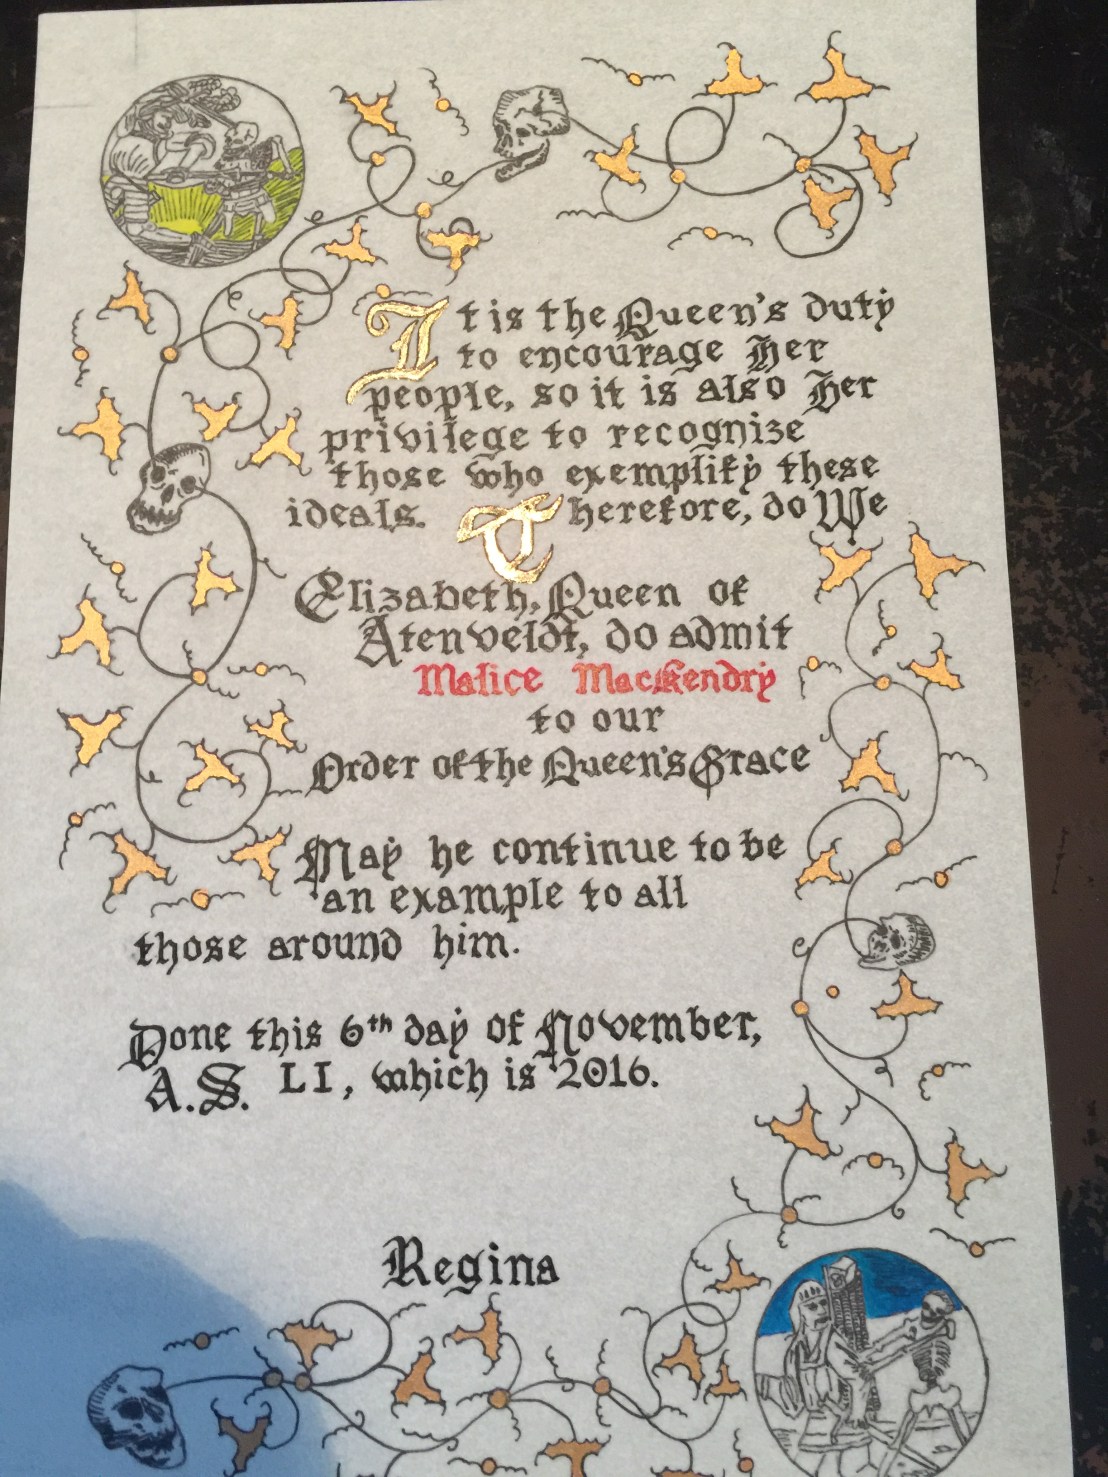 It is the Queen's duty
to encourage Her
people, so it is also Her
privilege to recognize
those who exemplify these
ideals. Therefore, do We
Elizabeth, Queen of
Atenveldt, do admit
Malice MacKendry
to our
Order of the Queen's Grace
May he continue to be
an example to all
those around him.
Done this 6th day of November,
A.S. LI, which is 2016.
Regina